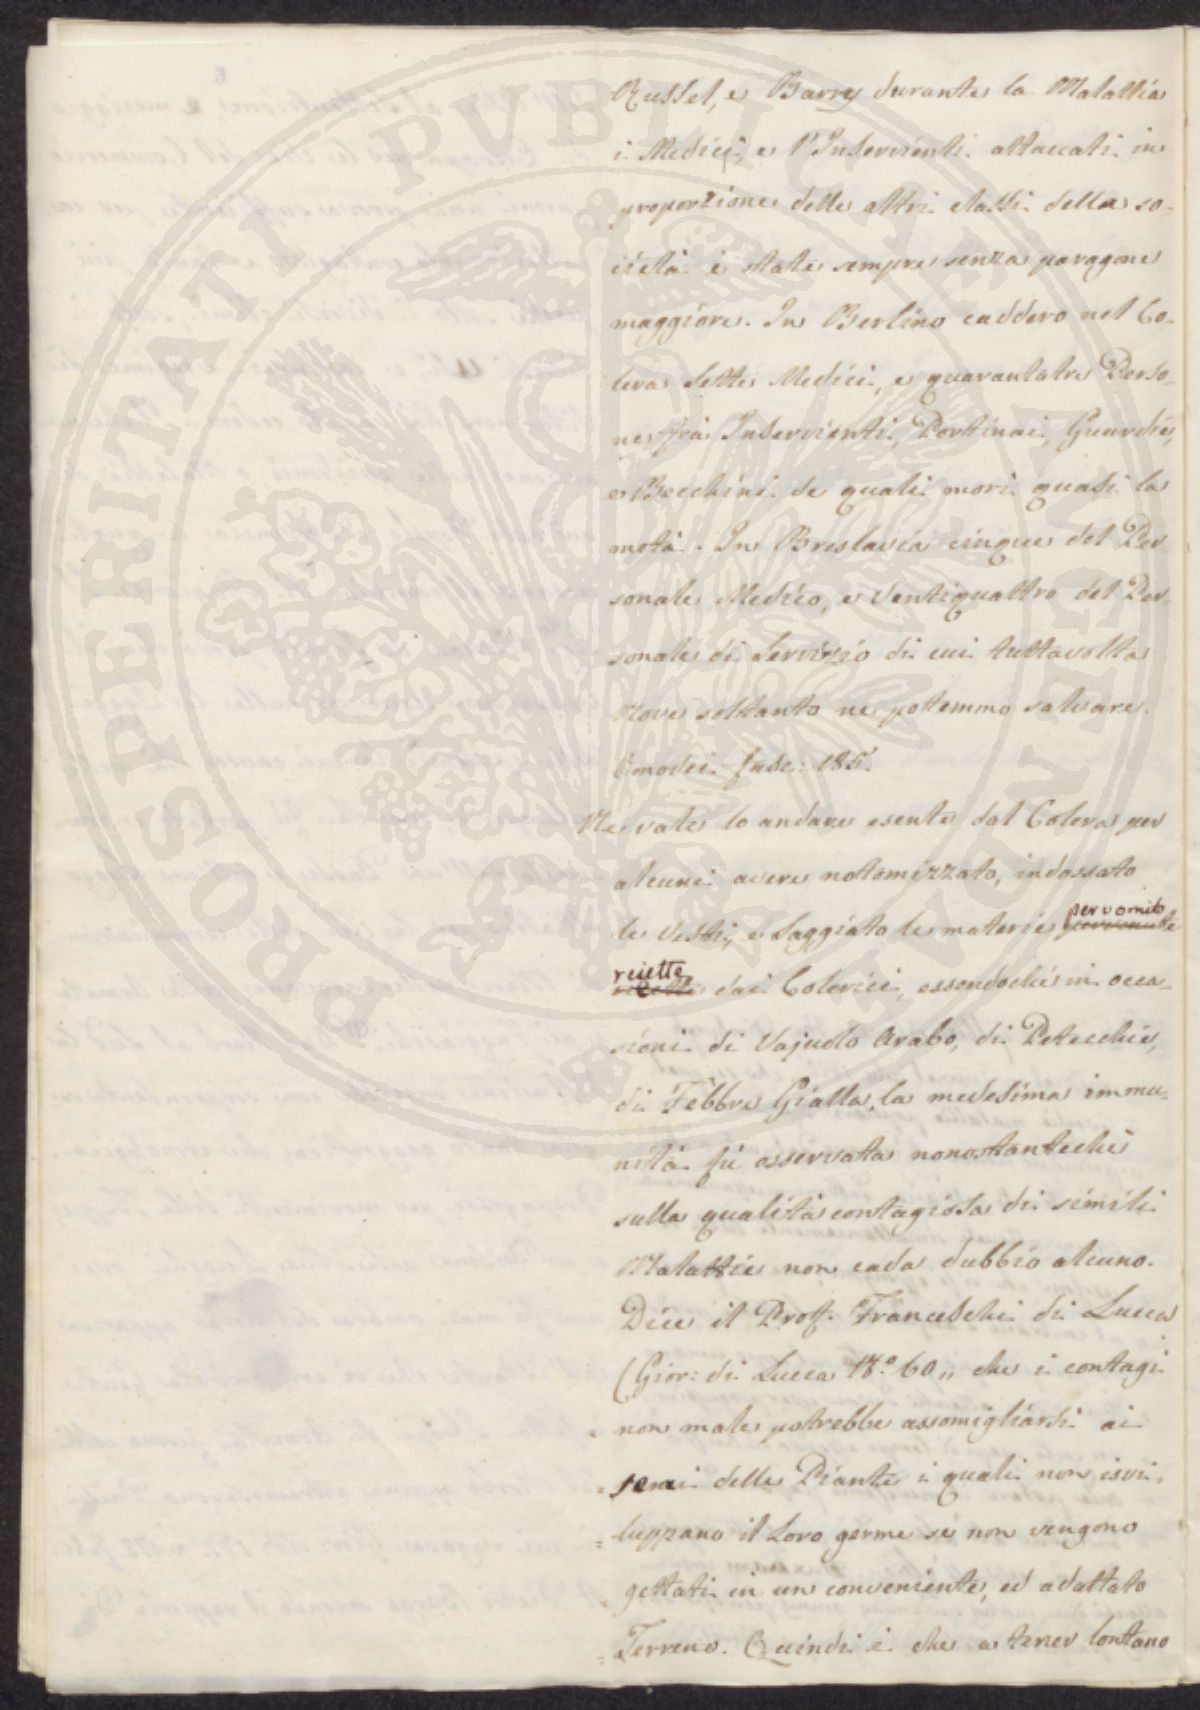 Russel, e Barry durante la Malattia
i Medici, e l'Inservienti attaccati in
proporzione delle altri classi della so=
cietà è state sempre senza paragone
maggiore. In Berlino caddero nel Co=
lera sette Medici, e quarantatre Perso=
ne frà Inservienti, Portinai, Guardie,
e Becchini de quali morì quasi la
metà. In Breslavia cinque del Per=
sonale Medico, e ventiquattro del Per=
sonale di Servizio di cui tuttavolta
Nove soltanto ne potemmo salvare.
Omodei fasc: 185.
Ne vale lo andare esente dal Colera per
alcuni avere notomizzato, indossato
le vesti, e saggiato le materie per vomito
reiette dai Colerici, essendochè in occa=
sioni di Vajuolo Arabo, di Petecchie,
di Febbre Gialla, la medesima immu=
nità fù osservata nonostantechè
sulla qualità contagiosa di simili
Malattie non cada dubbio alcuno.
Dice il Prof. Franceschi di Lucca
(Gior: di Lucca N.º 60,, che i contagi
= non male potrebbe assomigliarsi ai
= semi delle Piante i quali non isvi=
= luppano il Loro germe se non vengono
= gettati in un conveniente, ed adattato
= Terreno. Quindi è che a tener lontano
PROSPERITATI PUBLICAE AUGENDAE